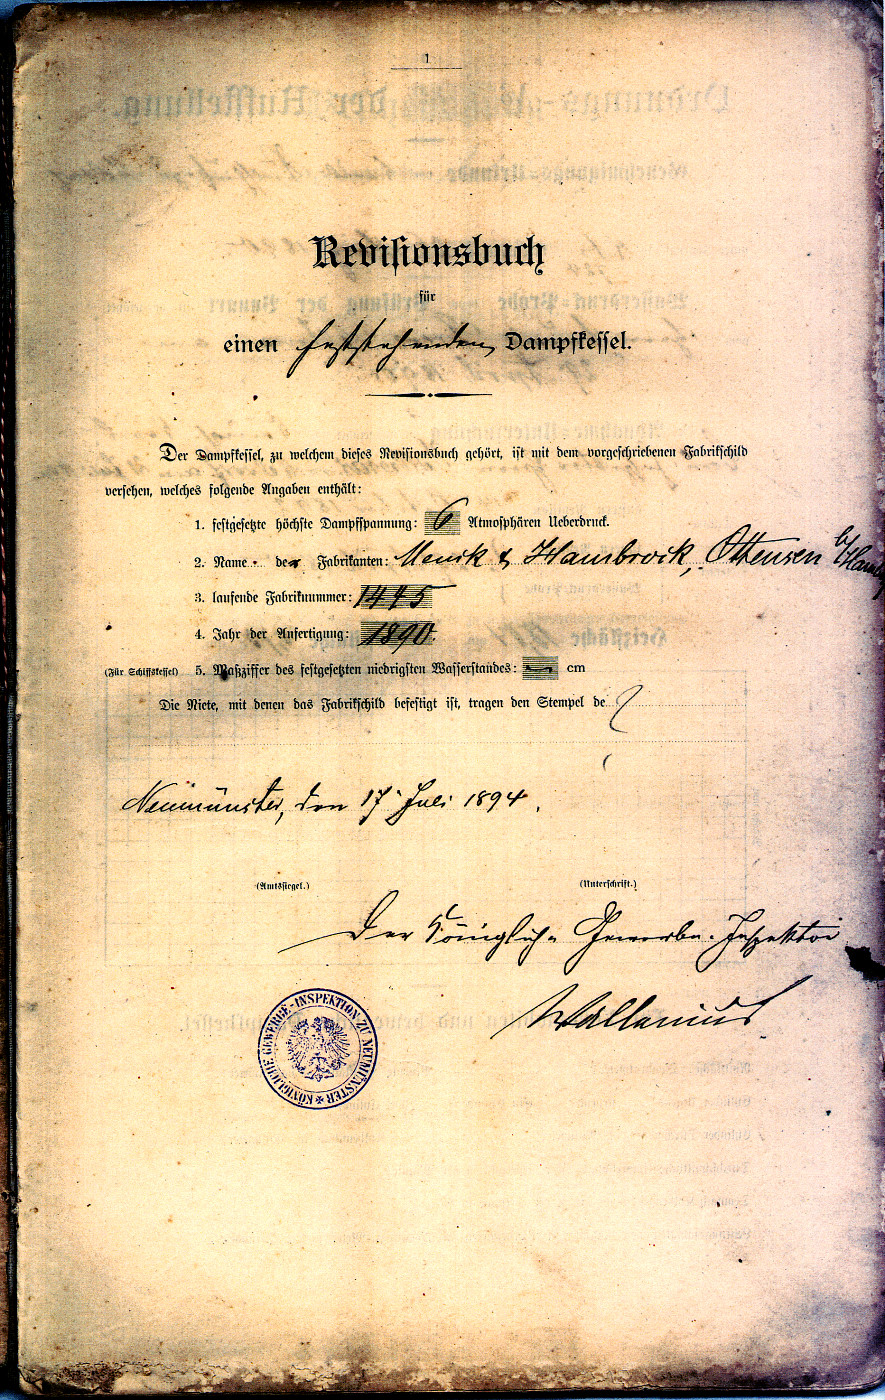 1
Revisionsbuch
für
einen feststehenden Dampfkessel.
Der Dampfkessel, zu welchem dieses Revisionsbuch gehört, ist mit dem vorgeschriebenen Fabrikschild
versehen, welches folgende Angaben enthält:
1. festgesetzte höchste Dampfspannung: 6 Atmosphären Ueberdruck.
2. Name des Fabrikanten: Menck & Hambrock, Ottensen b/Hambg
3. laufende Fabriknummer: 1445
4. Jahr der Anfertigung: 1890.
(Für Schiffskessel) 5. Maßziffer des festgesetzten niedrigsten Wasserstandes: — cm
Die Niete, mit denen das Fabrikschild befestigt ist, tragen den Stempel de
Neumünster, den 17. Juli 1894.
(Amtssiegel.) (Unterschrift.)
Der Königliche Gewerbe-Inspektor
KÖNIGLICHE GEWERBE-INSPEKTION ZU NEUMÜNSTER